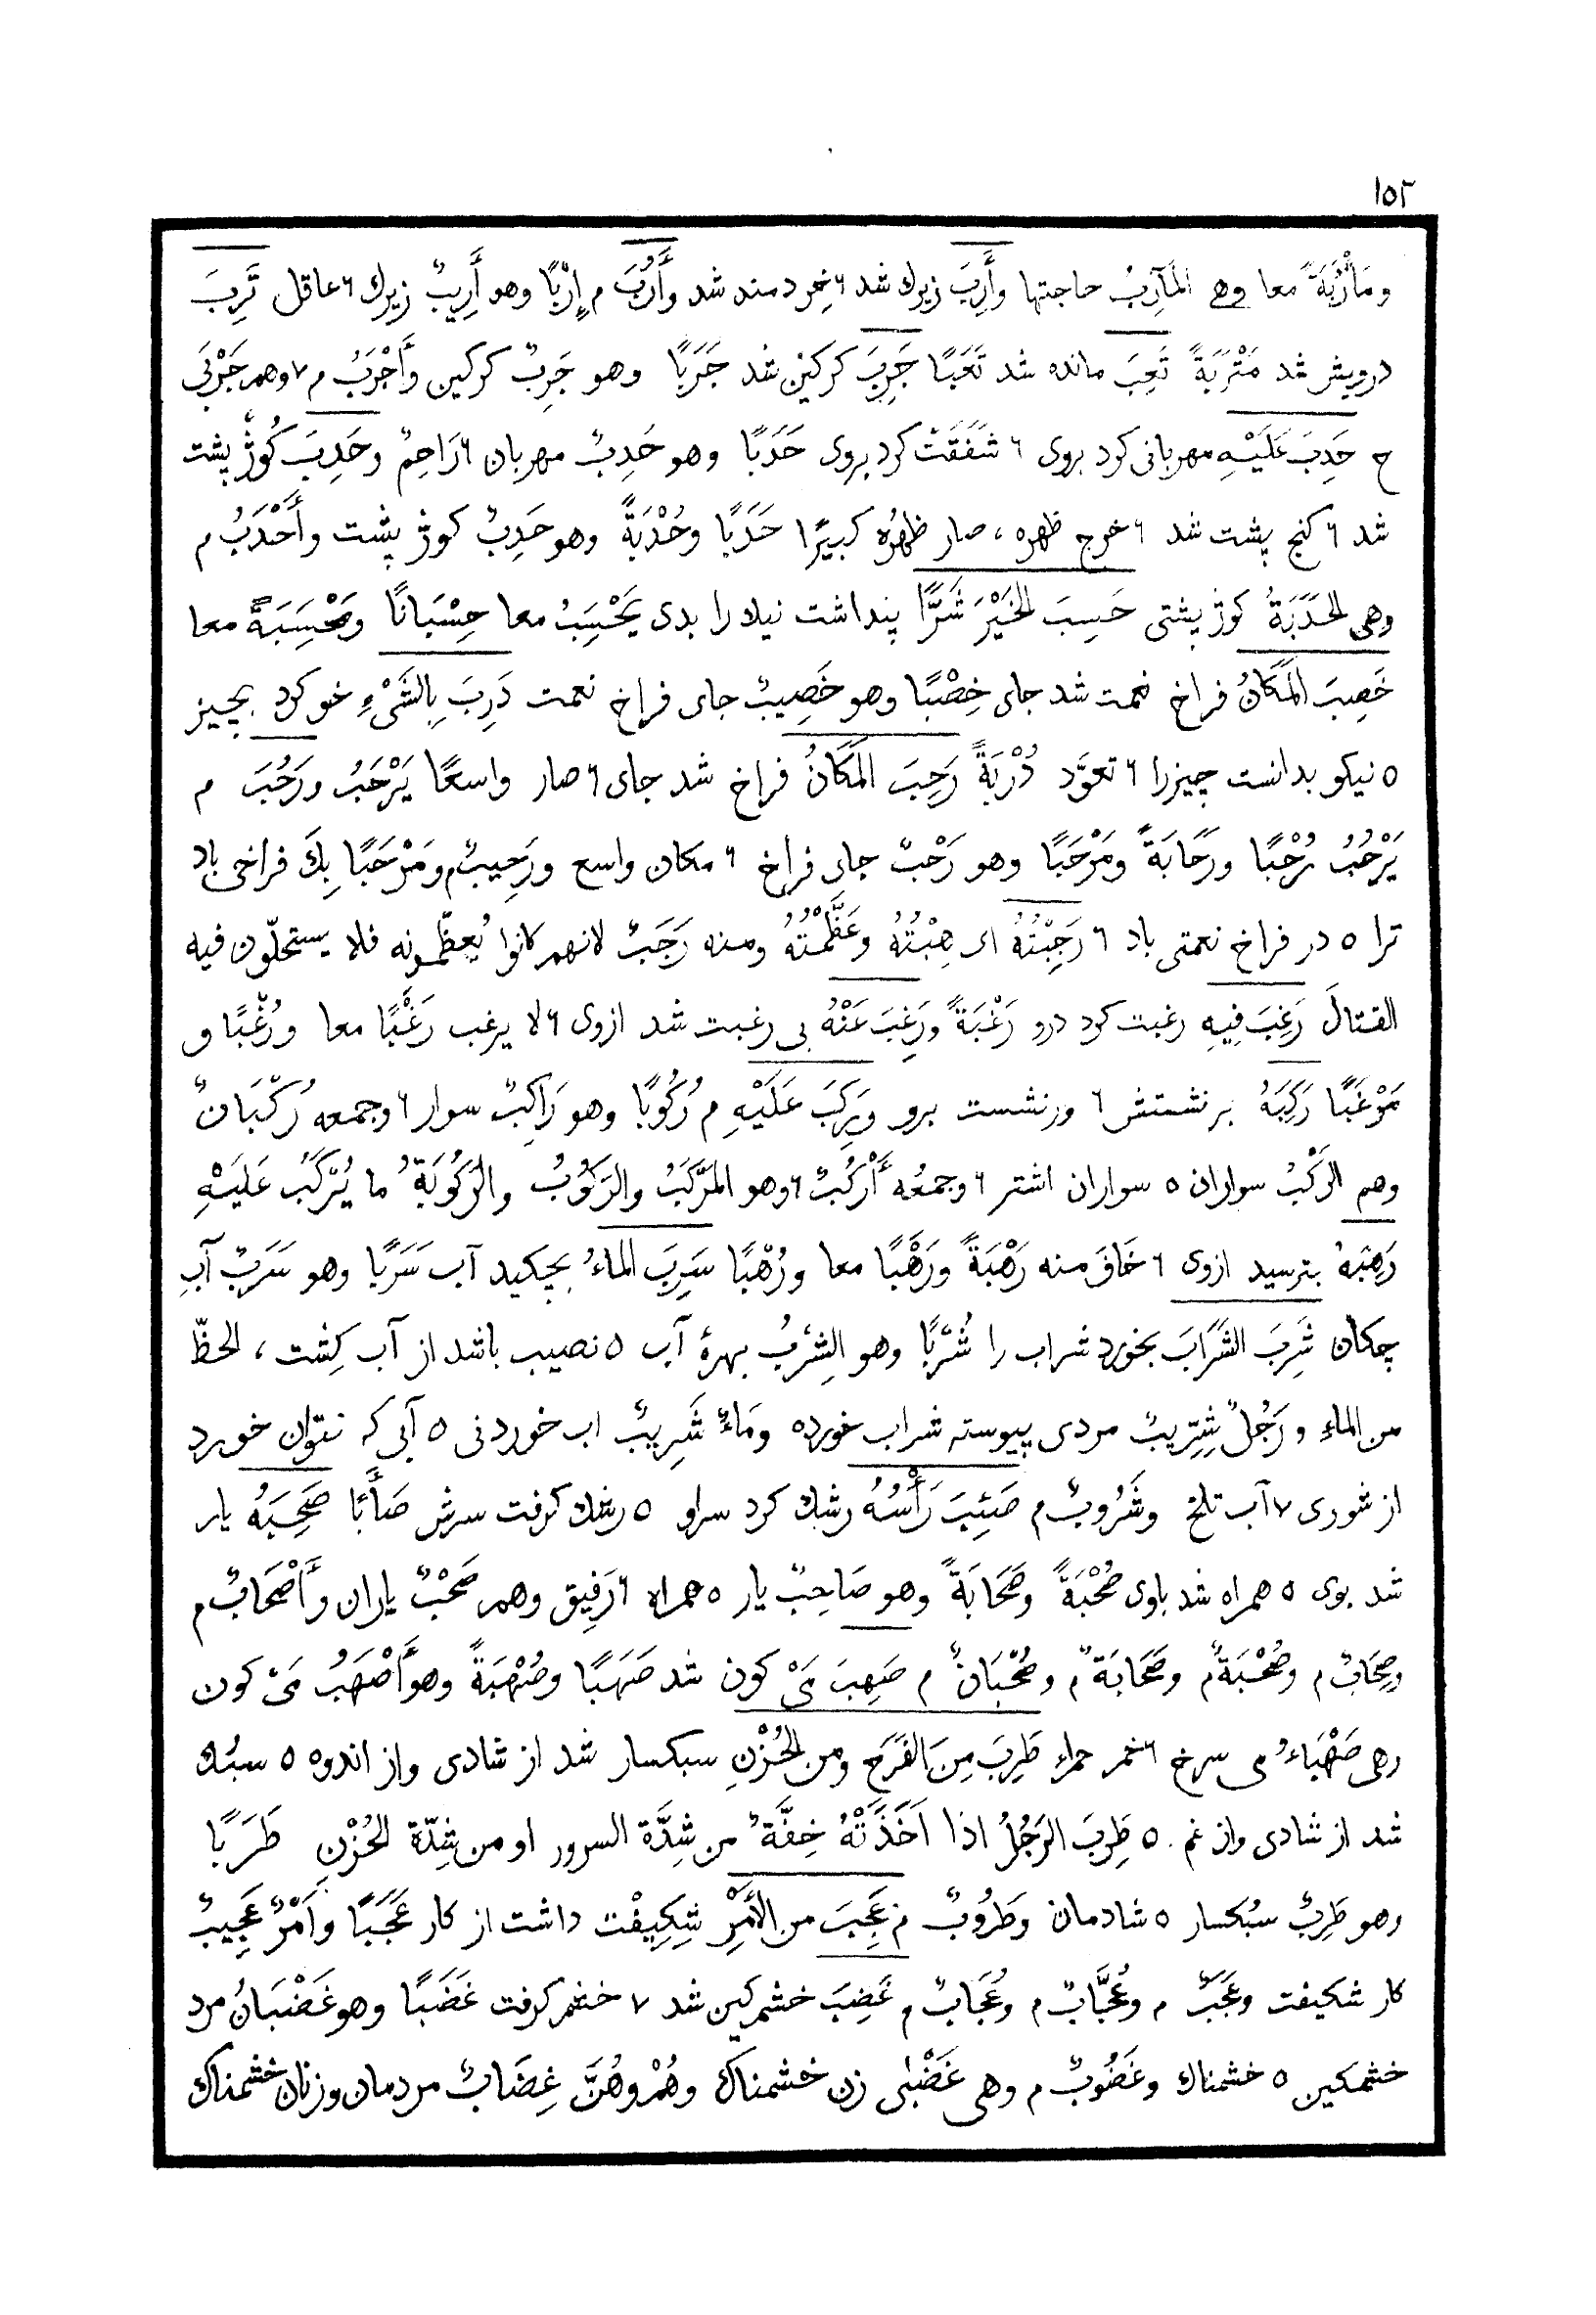 ١٥٢
ومَأْرُبَةً معا وهى المَآرِبُ حاجتها وأَرِبَ زيرك شد ٦ خردمند شد وأَرُبَ م إِرْبًا وهو أَرِيبٌ زيرك ٦ عاقل تَرِبَ
درويش شد مَتْرَبَةً تَعِبَ مانده شد تَعَبًا جَرِبَ كركين شد جَرَبًا وهو جَرِبٌ كركين وأَجْرَبُ م ٧ وهم جَرْبَى
ح حَدِبَ عَلَيْهِ مهربانى كرد بروى ٦ شَفَقَتْ كرد بروى حَدَبًا وهو حَدِبٌ مهربان ٦ رَاحِمٌ وحَدِبَ كُوژ پشت
شد ٦ كنج پشت شد ٦ خرج ظهره، صار ظهرُه كبيرًا حَدَبًا وحُدْبَةً وهو حَدِبٌ كوژ پشت وأَحْدَبُ م
وهى الحَدَبَةُ كوژ پشتى حَسِبَ الخَيْرَ شَرًّا پنداشت نيك را بدى يَحْسَِبُ معا حِسْبَانًا ومَحْسَِبَةً معا
خَصِبَ المَكَانُ فراخ نعمت شد جاى خِصْبًا وهو خَصِيبٌ جاى فراخ نعمت دَرِبَ بِالشَّىْءِ خو كرد بچيز
٥ نيكو بدانست چيزرا ٦ تعوَّد دُرْبَةً رَحِبَ المَكَانُ فراخ شد جاى ٦ صار واسعًا يَرْحَبُ ورَحُبَ م
يَرْحُبُ رُحْبًا ورَحَابَةً ومَرْحَبًا وهو رَحْبٌ جاى فراخ ٦ مكان واسع ورَحِيبٌ م ومَرْحَبًا بِكَ فراخى باد
ترا ٥ در فراخ نعمتى باد ٦ رَجِبْتُهُ اى هِبْتُهُ وعَظَّمْتُهُ ومنه رَجَبٌ لانهم كانوا يُعظّمونه فلا يستحلّون فيه
القتالَ رَغِبَ فِيهِ رغبت كرد درو رَغْبَةً ورَغِبَ عَنْهُ بى رغبت شد ازوى ٦ لا يرغب رَغَْبًا معا ورُغْبًا و
مَرْغَبًا رَكِبَهُ برنشستش ٦ ورنشست برو ورَكِبَ عَلَيْهِ م رُكُوبًا وهو رَاكِبٌ سوار ٦ وجمعه رُكْبَانٌ
وهم الرَكْبُ سواران ٥ سواران اشتر ٦ وجمعُه أَرْكُبٌ ٦ وهو المَرْكَبُ والرَكُوبُ والرَكُوبَةُ ما يُرْكَبُ عَلَيْهِ
رَهِبَهُ بترسيد ازوى ٦ خَافَ منه رَهْبَةً ورَهَْبًا معا ورُهْبًا سَرِبَ الماءُ بچكيد آب سَرَبًا وهو سَرَبٌ آبِ
چكان شَرِبَ الشَرَابَ بخورد شراب را شُرْبًا وهو الشِرْبُ بهرۀ آب ٥ نصيب باشد از آب كِشت، الحظّ
من الماءِ ورَجُلٌ شِرِّيبٌ مردى پيوسته شراب خورده ومَاءٌ شَرِيبٌ اب خوردنى ٥ آبى كه نتوان خورد
از شورى ٧ آب تلخ وشَرُوبٌ م صَئِبَ رَأْسُهُ رشك كرد سراو ٥ رشك كرفت سرش صَأَبًا صَحِبَهُ يار
شد بوى ٥ همراه شد باوى صُحْبَةً وصَحَابَةً وهو صَاحِبٌ يار ٥ همراه ٦ رَفِيق وهم صَحْبٌ ياران وأَصْحَابٌ م
وصِحَابٌ م وصُحْبَةٌ م وصَحَابَةٌ م وصُحْبَانٌ م صَهِبَ مَىْ كون شد صَهَبًا وصُهْبَةً وهو أَصْهَبُ مَىْ كون
وهى صَهْبَاءُ مى سرخ ٦ خمر حمراء طَرِبَ مِنَ الفَرَحِ ومن الحُزْنِ سبكسار شد از شادى واز اندوه ٥ سبُك
شد از شادى واز غم. ٥ طَرِبَ الرَجُلُ اذا اَخَذَتْهُ خِفَّةٌ من شِدَّة السرور او من شِدّة الحُزْنِ طَرَبًا
وهو طَرِبٌ سبُكسار ٥ شادمان وطَرُوبٌ م عَجِبَ من الأَمْرِ شِكِيفْت داشت از كار عَجَبًا وأَمْرٌ عَجِيبٌ
كار شكيفت وعَجَبٌ م وعُجَّابٌ م وعُجَابٌ م غَضِبَ خشمكين شد ٧ خشم كرفت غَضَبًا وهو غَضْبَانُ مرد
خشمكين ٥ خشمناك وغَضُوبٌ م وهى غَضْبَى زن خشمناك وهُمْ وهُنَّ غِضَابٌ مردمان وزنان خشمناك